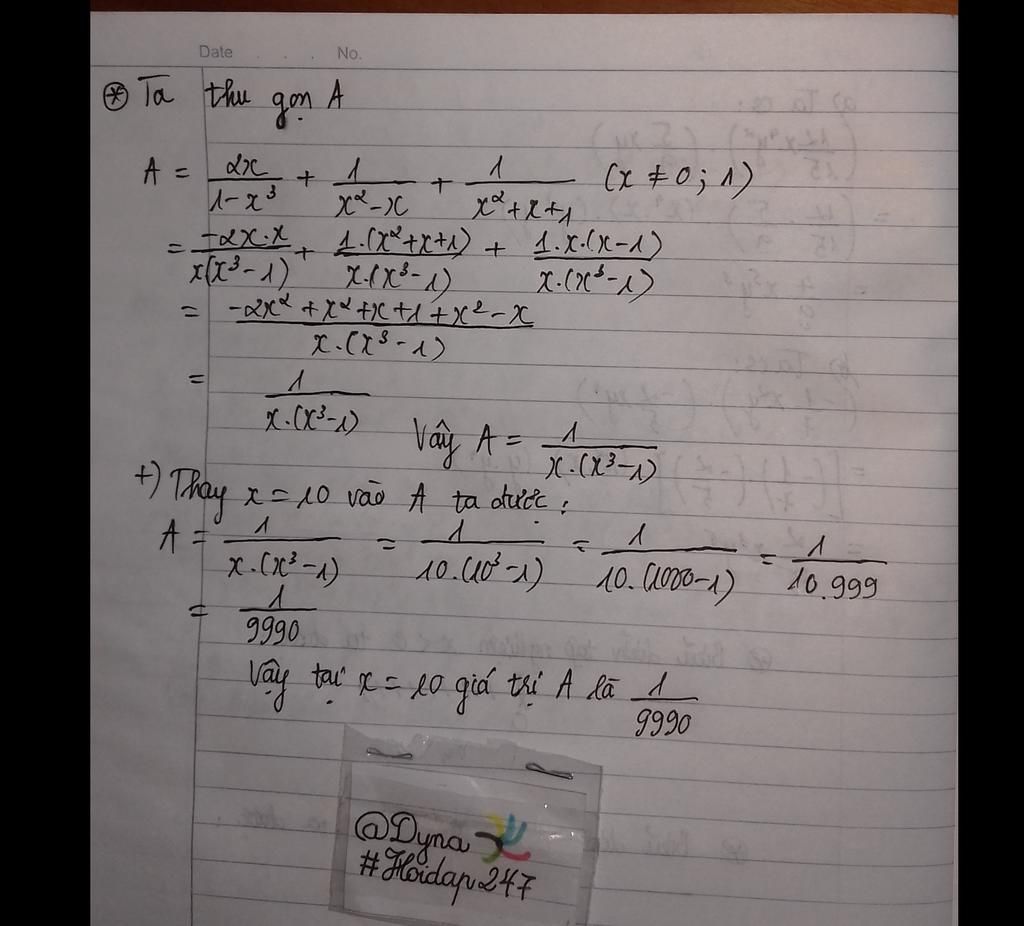 Date . . . No.
⊛ Ta thu gọn A
A = 2x/(1-x³) + 1/(x²-x) + 1/(x²+x+1) (x ≠ 0; 1)
= -2x.x/x(x³-1) + 1.(x²+x+1)/x.(x³-1) + 1.x.(x-1)/x.(x³-1)
= (-2x²+x²+x+1+x²-x)/x.(x³-1)
= 1/x.(x³-1)
Vậy A = 1/x.(x³-1)
+) Thay x = 10 vào A ta được:
A = 1/x.(x³-1) = 1/10.(10³-1) = 1/10.(1000-1) = 1/10.999
= 1/9990
Vậy tại x = 10 giá trị A là 1/9990
@Dyna
#Hoidap247